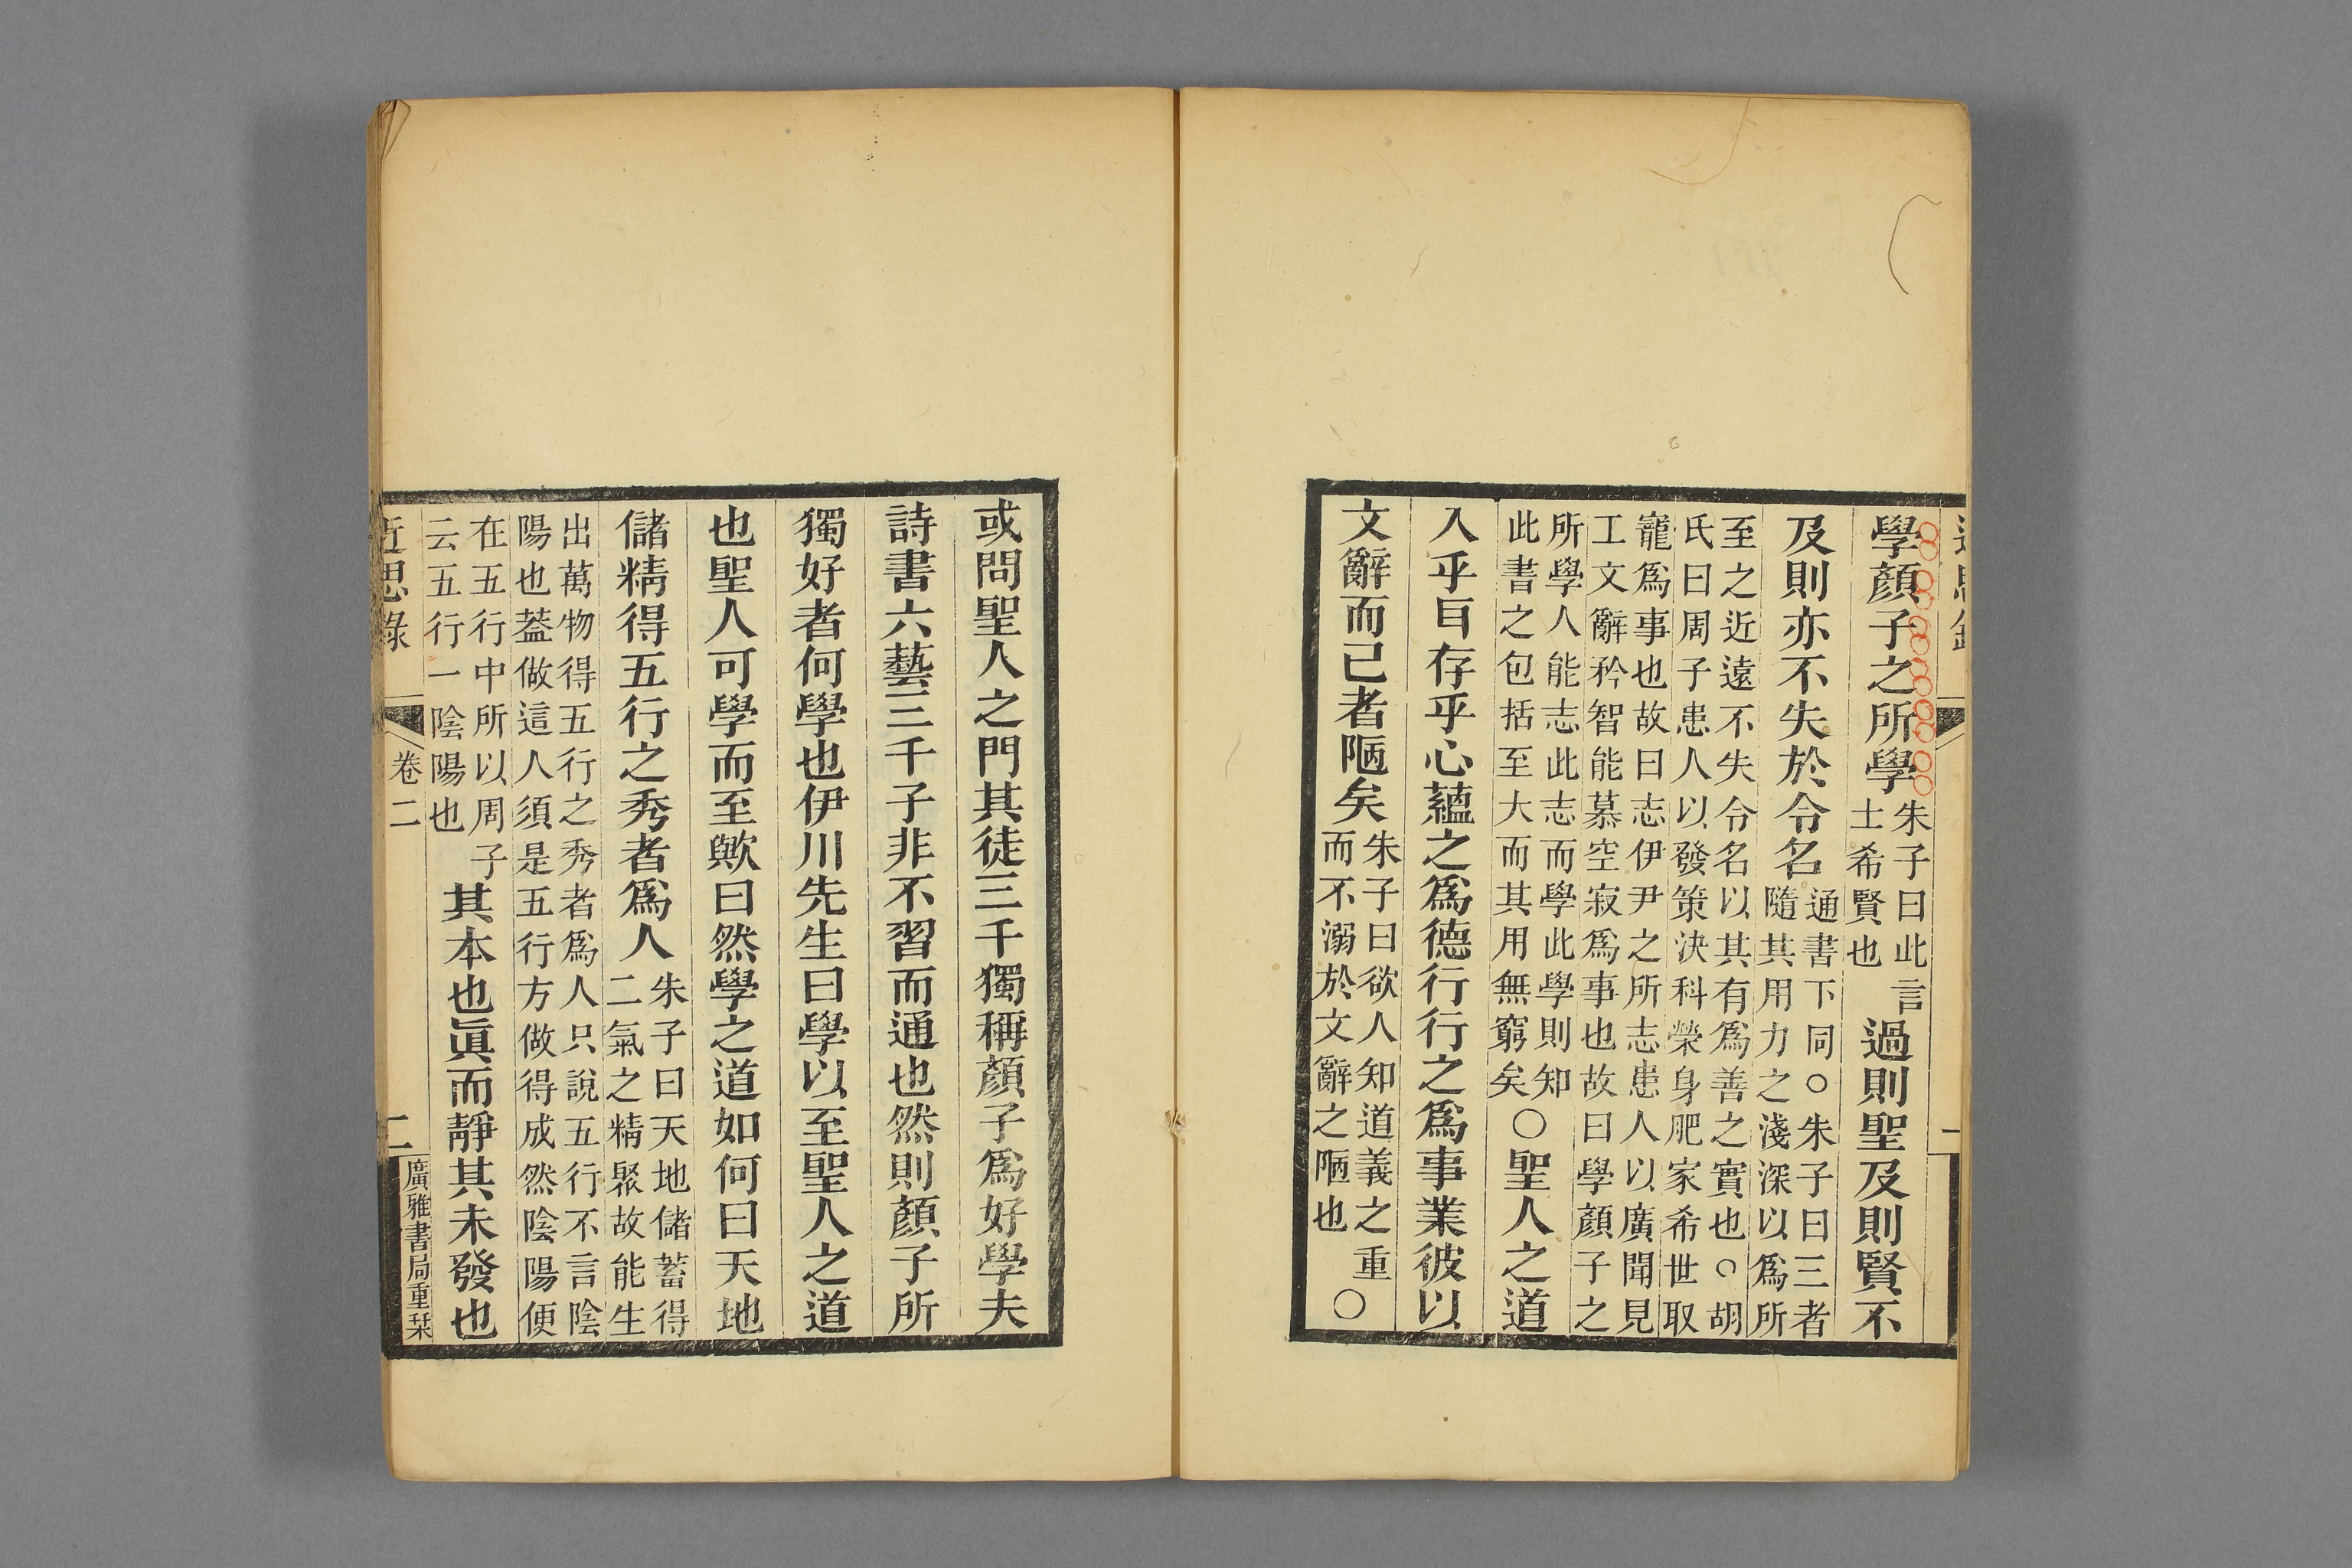 學顏子之所學朱子曰此言士希賢也過則聖及則賢不
及則亦不失於令名通書下同○朱子曰三者隨其用力之淺深以爲所
至之近遠不失令名以其有爲善之實也○胡
氏曰周子患人以發策決科榮身肥家希世取
寵爲事也故曰志伊尹之所志患人以廣聞見
工文辭矜智能慕空寂爲事也故曰學顏子之
所學人能志此志而學此學則知此書之包括至大而其用無窮矣○聖人之道
入乎耳存乎心蘊之爲德行行之爲事業彼以
文辭而已者陋矣朱子曰欲人知道義之重而不溺於文辭之陋也○
或問聖人之門其徒三千獨稱顏子爲好學夫
詩書六藝三千子非不習而通也然則顏子所
獨好者何學也伊川先生曰學以至聖人之道
也聖人可學而至歟曰然學之道如何曰天地
儲精得五行之秀者爲人朱子曰天地儲蓄得二氣之精聚故能生
出萬物得五行之秀者爲人只說五行不言陰
陽也蓋做這人須是五行方做得成然陰陽便
在五行中所以周子云五行一陰陽也其本也眞而靜其未發也
近思錄
卷二
二
廣雅書局重栞